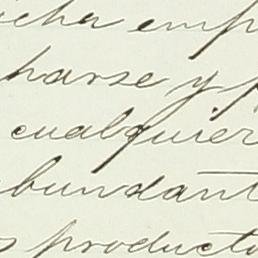 icha emp
harse y p
cualquier
bundant
s producto